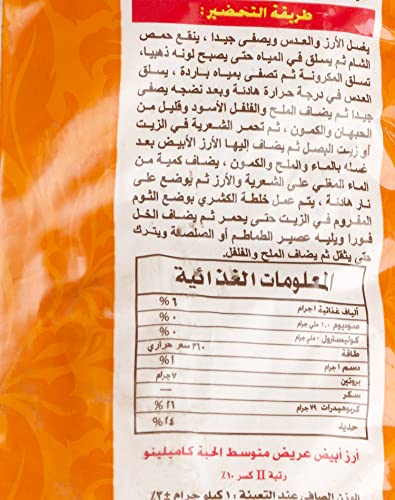 طريقة التحضير :
يغسل الأرز والعدس ويصفى جيدا ، ينقع حمص
الشام ثم يسلق في المياه حتى يصبح لونه ذهبيا،
تسلق المكرونة ثم تصفى بمياه باردة ، يسلق
العدس في درجة حرارة هادئة وبعد نضجه يصفى
جيدا ثم يضاف الملح والفلفل الأسود وقليل من
الحبهان والكمون ، ثم تحمر الشعرية في الزيت
أو زيت البصل ثم يضاف إليها الأرز الأبيض بعد
غسله بالماء والملح والكمون ، يضاف كمية من
الماء المغلي على الشعرية والأرز ثم يوضع على
نار هادئة، يتم عمل خلطة الكشري بوضع الثوم
المفروم في الزيت حتى يحمر ثم يضاف الخل
فورا ويليه عصير الطماطم أو الصلصة ويترك
حتى يثقل ثم يضاف الملح والفلفل.
المعلومات الغذائية
ألياف غذائية ١ جرام ٦ %
صوديوم ١٠٠ مللي جرام ٠ %
كوليسترول ٠ مللي جرام ٠ %
طاقة ٣٦٠ سعر حراري
دسم ١ جرام ١ %
بروتين ٧ جرام
سكر —
كربوهيدرات ٧٩ جرام ٢٦ %
حديد ٢٤ %
أرز أبيض عريض متوسط الحبة كاميلينو
رتبة II كسر ١٠٪
الوزن الصافي عند التعبئة : ١ كيلو جرام ± ٣٪